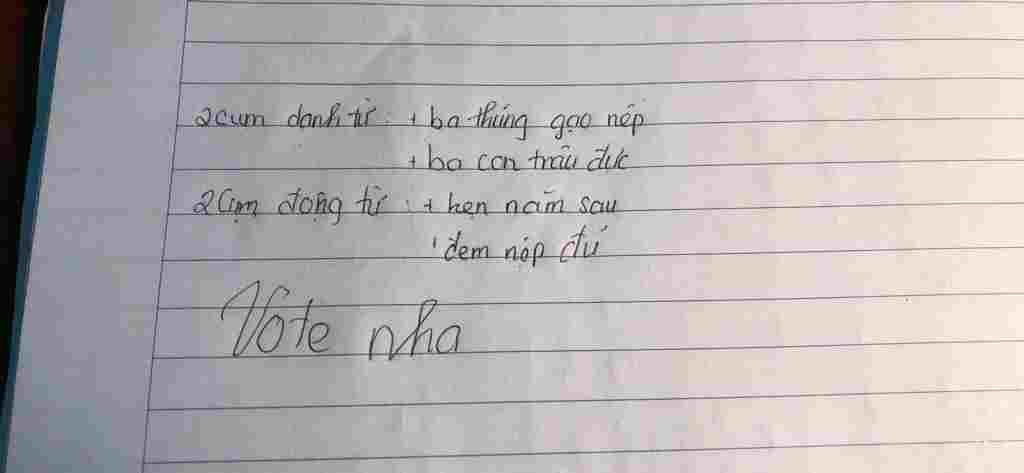 2 cụm danh từ : + ba thúng gạo nếp
+ ba con trâu đực
2 Cụm động từ : + hẹn năm sau
+ đem nộp đủ
Vote nha